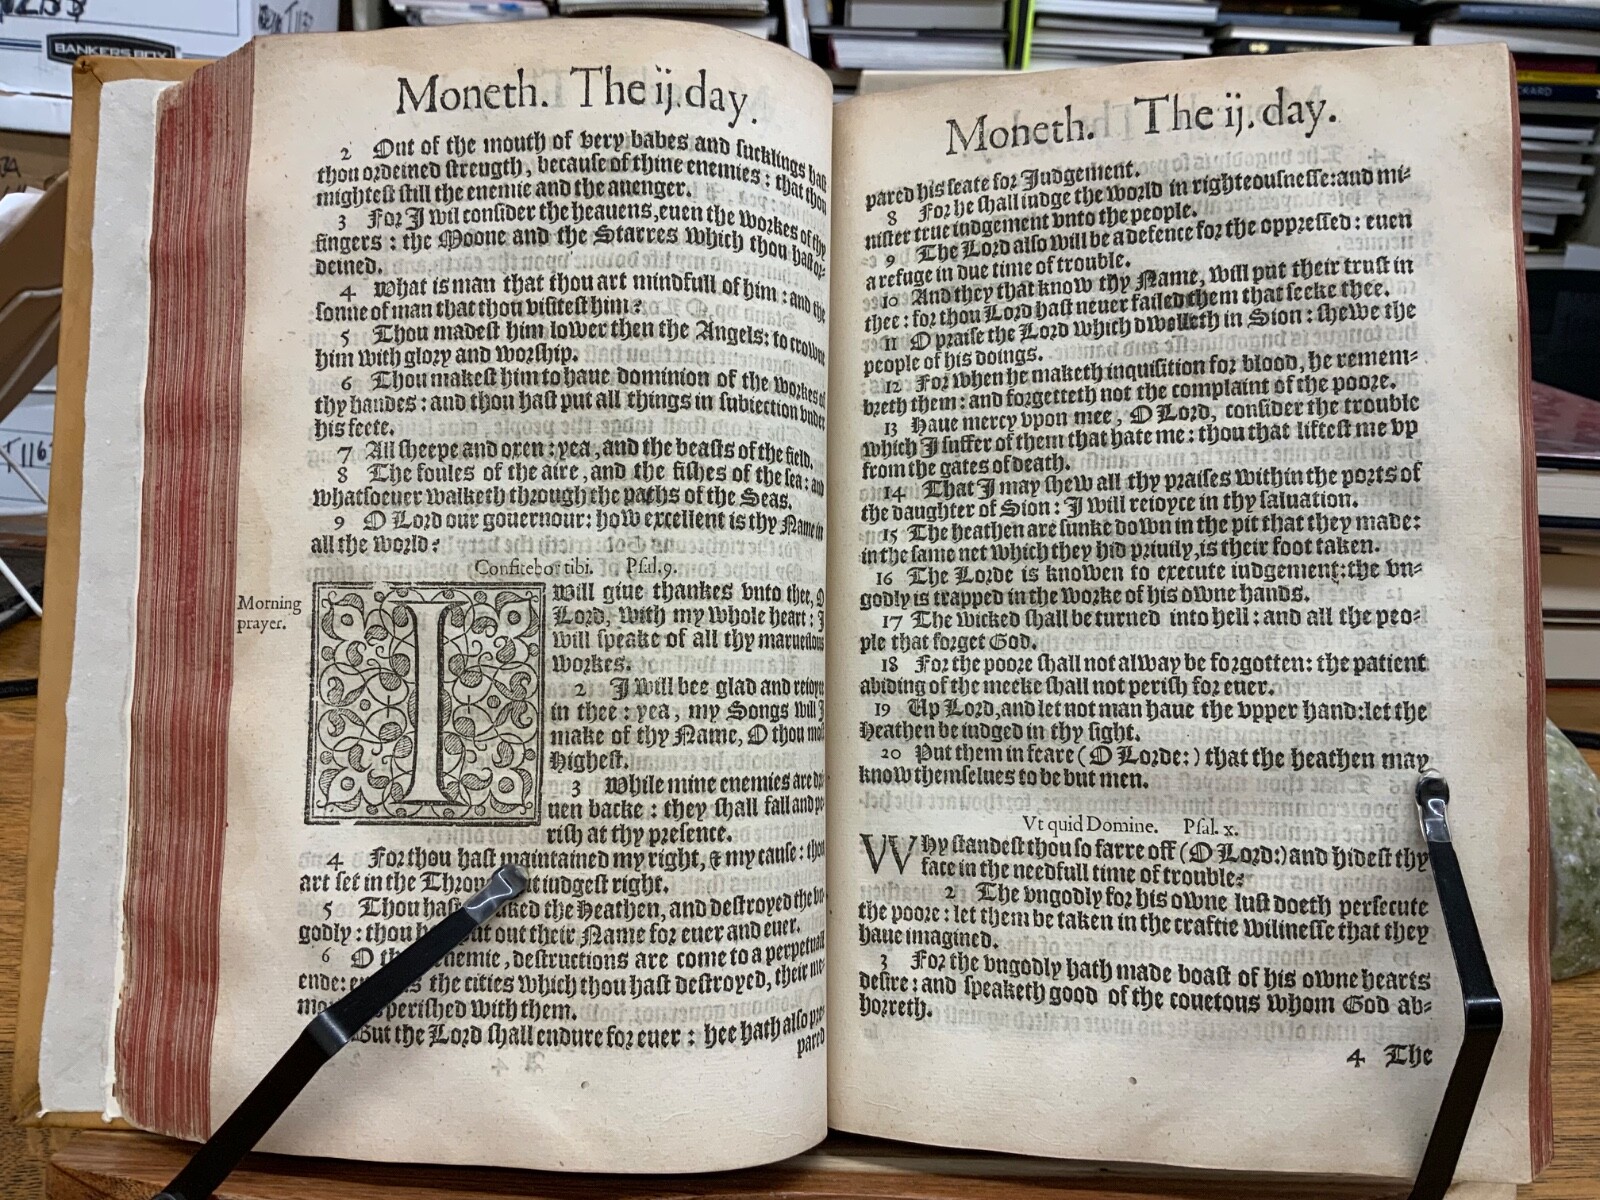 BANKERS BOX
Moneth. The ij. day.
2 Out of the mouth of very babes and sucklings hast
thou ordeined strength, because of thine enemies : that thou
mightest still the enemie and the auenger.
3 For I wil consider the heauens, euen the workes of thy
fingers : the Moone and the Starres which thou hast or-
deined.
4 What is man that thou art mindfull of him : and the
sonne of man that thou visitest him?
5 Thou madest him lower then the Angels : to crowne
him with glory and worship.
6 Thou makest him to haue dominion of the workes of
thy handes : and thou hast put all things in subiection vnder
his feete.
7 All sheepe and oxen : yea, and the beasts of the field.
8 The foules of the aire, and the fishes of the sea : and
whatsoeuer walketh through the paths of the Seas.
9 O Lord our gouernour : how excellent is thy Name in
all the world?
Confitebor tibi. Psal. 9.
Morning
prayer.
I Will giue thankes vnto thee, O
Lord, with my whole heart : I
will speake of all thy marueilous
workes.
2 I will bee glad and reioyce
in thee : yea, my Songs will I
make of thy Name, O thou most
Highest.
3 While mine enemies are dri-
uen backe : they shall fall and pe-
rish at thy presence.
4 For thou hast maintained my right, & my cause : thou
art set in the Thron iudgest right.
5 Thou hast ked the Heathen, and destroyed the vn-
godly : thou h put out their Name for euer and euer.
6 O th enemie, destructions are come to a perpetuall
ende : e s the cities which thou hast destroyed, their me-
mo s perished with them.
But the Lord shall endure for euer : hee hath also pre-
pared
Moneth. The ij. day.
pared his seate for Iudgement.
8 For he shall iudge the world in righteousnesse : and mi-
nister true iudgement vnto the people.
9 The Lord also will be a defence for the oppressed : euen
a refuge in due time of trouble.
10 And they that know thy Name, will put their trust in
thee : for thou Lord hast neuer failed them that seeke thee.
11 O praise the Lord which dwelleth in Sion : shewe the
people of his doings.
12 For when he maketh inquisition for blood, he remem-
breth them : and forgetteth not the complaint of the poore.
13 Haue mercy vpon mee, O Lord, consider the trouble
which I suffer of them that hate me : thou that liftest me vp
from the gates of death.
14 That I may shew all thy praises within the ports of
the daughter of Sion : I will reioyce in thy saluation.
15 The heathen are sunke down in the pit that they made :
in the same net which they hid priuily, is their foot taken.
16 The Lorde is knowen to execute iudgement : the vn-
godly is trapped in the worke of his owne hands.
17 The wicked shall be turned into hell : and all the peo-
ple that forget God.
18 For the poore shall not alway be forgotten : the patient
abiding of the meeke shall not perish for euer.
19 Up Lord, and let not man haue the vpper hand : let the
Heathen be iudged in thy sight.
20 Put them in feare (O Lorde:) that the heathen may
know themselues to be but men.
Vt quid Domine. Psal. x.
WHy standest thou so farre off (O Lord:) and hidest thy
face in the needfull time of trouble?
2 The vngodly for his owne lust doeth persecute
the poore : let them be taken in the craftie wilinesse that they
haue imagined.
3 For the vngodly hath made boast of his owne hearts
desire : and speaketh good of the couetous whom God ab-
horreth.
4 The